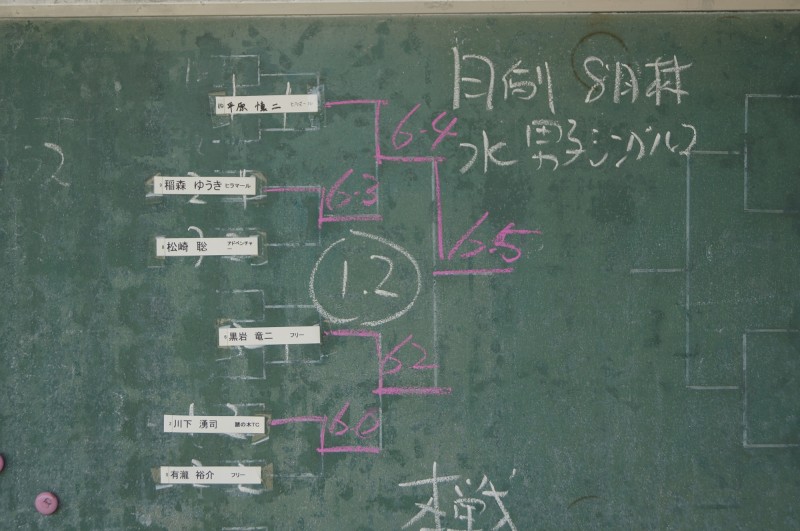 目向 8月杯
水 男子シングルス
平原 慎二 ヒラマール
6-4
稲森 ゆうき ヒラマール
6-3
松崎 聡 アドベンチャー
6-5
1.2
黒岩 竜二 フリー
62
川下 湧司 勝の木TC
6-0
有瀧 裕介 フリー
本戦